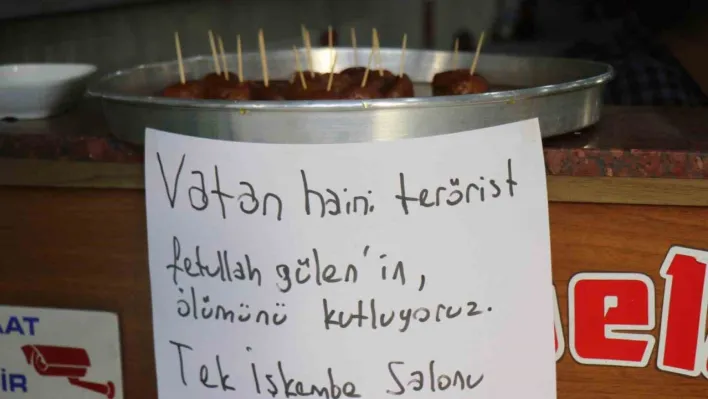 Vatan haini terörist
fetullah gülen'in,
ölümünü kutluyoruz.
Tek İşkembe Salonu
AAT
İR